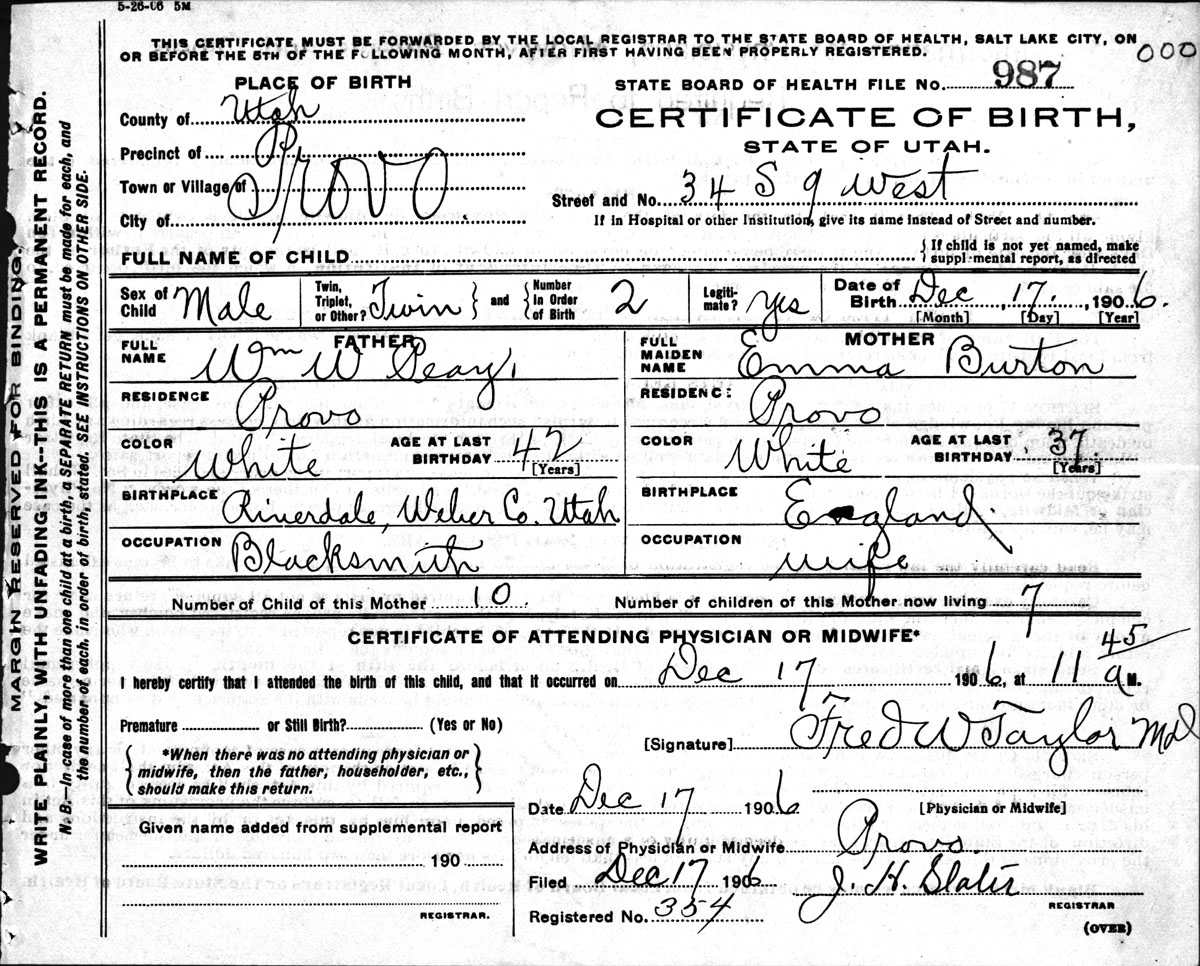 5-26-06 5M
THIS CERTIFICATE MUST BE FORWARDED BY THE LOCAL REGISTRAR TO THE STATE BOARD OF HEALTH, SALT LAKE CITY, ON
OR BEFORE THE 5TH OF THE FOLLOWING MONTH, AFTER FIRST HAVING BEEN PROPERLY REGISTERED.
000
PLACE OF BIRTH
STATE BOARD OF HEALTH FILE No. 987
County of Utah
CERTIFICATE OF BIRTH,
STATE OF UTAH.
Precinct of
Town or Village of Provo
City of
Street and No. 34 S 9 West
If in Hospital or other Institution, give its name instead of Street and number.
FULL NAME OF CHILD
{ If child is not yet named, make
supplemental report, as directed
Sex of Child Male
Twin, Triplet, or Other? Twin } and { Number in Order of Birth 2
Legiti-mate? Yes
Date of Birth Dec 17, 1906.
[Month] [Day] [Year]
FATHER
FULL NAME Wm W Peay.
RESIDENCE Provo
COLOR White AGE AT LAST BIRTHDAY 42
[Years]
BIRTHPLACE Riverdale, Weber Co. Utah
OCCUPATION Blacksmith
MOTHER
FULL MAIDEN NAME Emma Burton
RESIDENCE Provo
COLOR White AGE AT LAST BIRTHDAY 37.
[Years]
BIRTHPLACE England.
OCCUPATION wife
Number of Child of this Mother 10 Number of children of this Mother now living 7
CERTIFICATE OF ATTENDING PHYSICIAN OR MIDWIFE*
I hereby certify that I attended the birth of this child, and that it occurred on Dec 17 1906, at 11 45 a M.
Premature or Still Birth? (Yes or No)
[Signature] Fred W Taylor Md
{ *When there was no attending physician or
midwife, then the father, householder, etc.,
should make this return. }
Date Dec 17 1906 [Physician or Midwife]
Given name added from supplemental report
190
REGISTRAR.
Address of Physician or Midwife Provo.
Filed Dec 17 1906 J. H. Slater
REGISTRAR
Registered No. 354
(OVER)
MARGIN RESERVED FOR BINDING.
WRITE PLAINLY, WITH UNFADING INK--THIS IS A PERMANENT RECORD.
N.B.—In case of more than one child at a birth, a SEPARATE RETURN must be made for each, and
the number of each, in order of birth, stated. SEE INSTRUCTIONS ON OTHER SIDE.